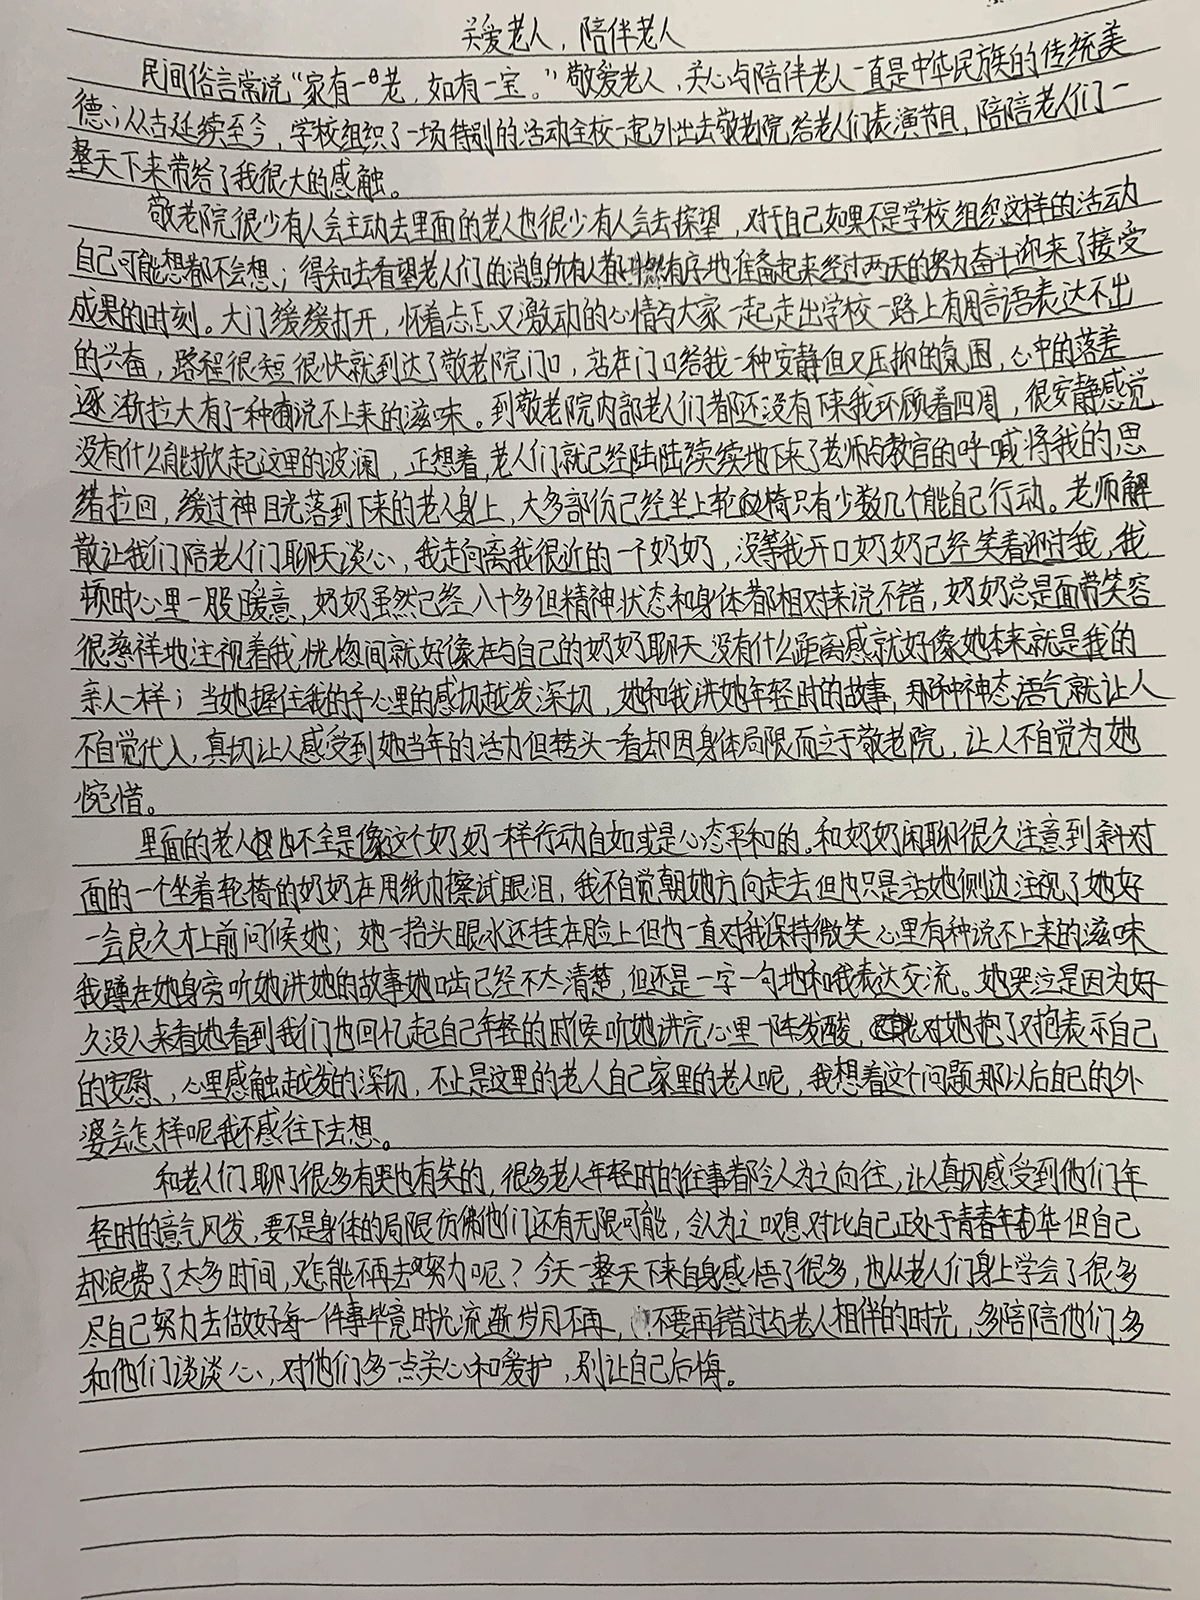 关爱老人，陪伴老人
民间俗言常说“家有一老，如有一宝。”敬爱老人、关心与陪伴老人一直是中华民族的传统美
德；从古延续至今，学校组织了一场特别的活动全校一起外出去敬老院给老人们表演节目，陪陪老人们一
整天下来带给了我很大的感触。
敬老院很少有人会主动去里面的老人也很少有人会去探望，对于自己如果不是学校组织这样的活动
自己可能想都不会想；得知去看望老人们的消息所有人都井然有序地准备起来经过两天的努力奋斗迎来了接受
成果的时刻。大门缓缓打开，怀着忐忑又激动的心情与大家一起走出学校一路上有用言语表达不出
的兴奋，路程很短很快就到达了敬老院门口，站在门口给我一种安静但又压抑的氛围，心中的落差
逐渐拉大有了一种说不上来的滋味。到敬老院内部老人们都还没有下来我环顾着四周，很安静感觉
没有什么能掀起这里的波澜，正想着，老人们就已经陆陆续续地下来了老师与教官的呼喊将我的思
绪拉回，缓过神目光落到下来的老人身上，大多部份已经坐上轮椅只有少数几个能自己行动。老师解
散让我们陪老人们聊天谈心、我走向离我很近的一个奶奶，没等我开口奶奶已经笑着迎过我，我
顿时心里一股暖意，奶奶虽然已经八十多但精神状态和身体都相对来说不错，奶奶总是面带笑容
很慈祥地注视着我，恍惚间就好像在与自己的奶奶聊天没有什么距离感就好像她本来就是我的
亲人一样；当她握住我的手心里的感切越发深切，她和我讲她年轻时的故事，那种神态语气就让人
不自觉代入，真切让人感受到她当年的活力但转头一看却因身体局限而立于敬老院，让人不自觉为她
惋惜。
里面的老人也不全是像这个奶奶一样行动自如或是心态平和的。和奶奶闲聊很久注意到斜对
面的一个坐着轮椅的奶奶在用纸巾擦试眼泪，我不自觉朝她方向走去但也只是站她侧边注视了她好
一会良久才上前问候她；她一抬头眼水还挂在脸上但也一直对我保持微笑心里有种说不上来的滋味
我蹲在她身旁听她讲她的故事她口齿已经不太清楚，但还是一字一句地和我表达交流。她哭泣是因为好
久没人来看她看到我们也回忆起自己年轻的时候听她讲完心里一阵发酸，对她抱了又抱表示自己
的安慰、心里感触越发的深切，不止是这里的老人自己家里的老人呢，我想着这个问题那以后自己的外
婆会怎样呢我不感往下去想。
和老人们聊了很多有哭也有笑的，很多老人年轻时的往事都令人为之向往，让人真切感受到他们年
轻时的意气风发，要不是身体的局限仿佛他们还有无限可能，令人为之叹息对比自己正处于青春年华但自己
却浪费了太多时间，又怎能不再去努力呢？今天一整天下来自身感悟了很多，也从老人们身上学会了很多
尽自己努力去做好每一件事毕竟时光流逝岁月不再，不要再错过与老人相伴的时光，多陪陪他们多
和他们谈谈心、对他们多一点关心和爱护，别让自己后悔。